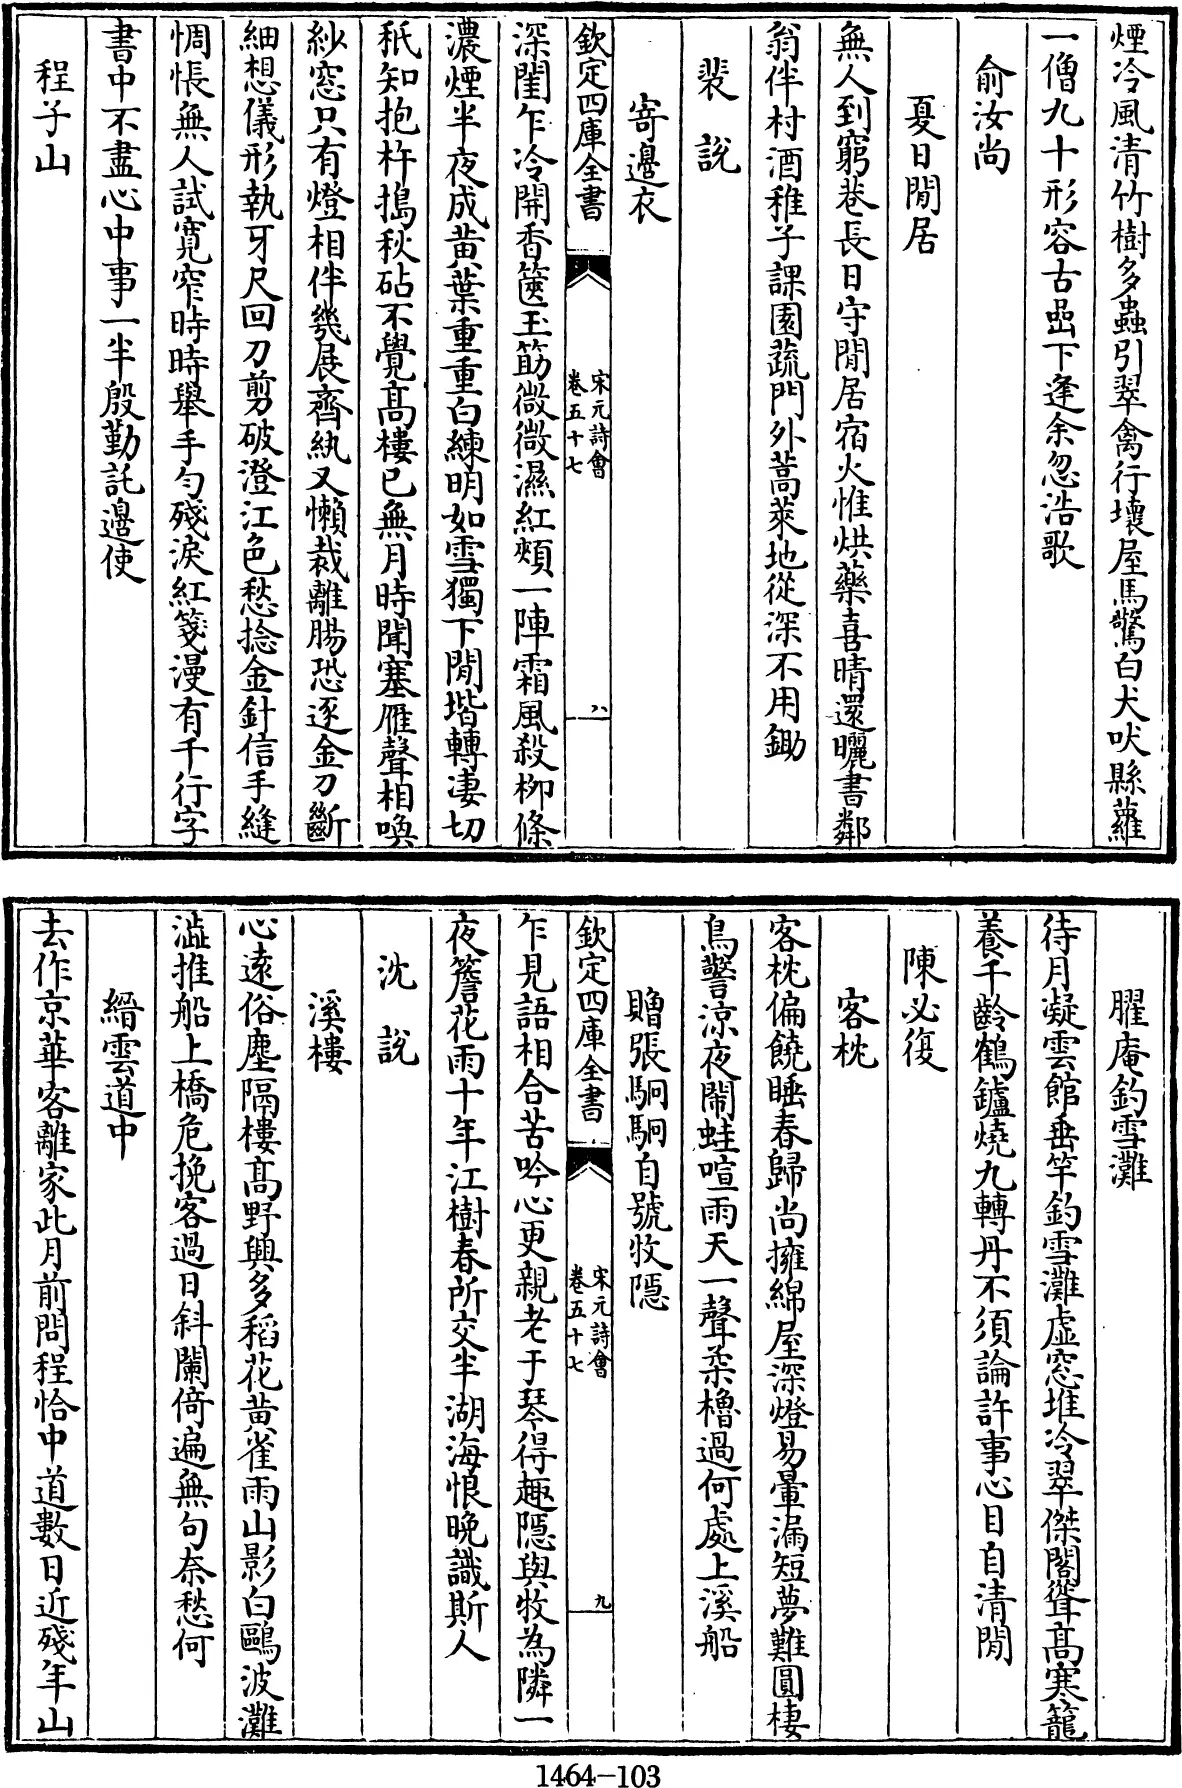 煙冷風清竹樹多蟲引翠禽行壞屋馬驚白犬吠縣蘿
一僧九十形容古嵒下逢余忽浩歌
俞汝尚
夏日閒居
無人到窮巷長日守閒居宿火惟烘藥喜晴還曬書鄰
翁伴村酒稚子課園蔬門外蒿萊地從深不用鋤
裴說
寄邊衣
欽定四庫全書
宋元詩會
卷五十七
八
深閨乍冷開香篋玉筯微微濕紅頰一陣霜風殺柳條
濃煙半夜成黃葉重重白練明如雪獨下閒堦轉淒切
秖知抱杵搗秋砧不覺高樓已無月時聞塞雁聲相喚
紗窓只有燈相伴幾展齊紈又懶裁離腸恐逐金刀斷
細想儀形執牙尺回刀剪破澄江色愁捻金針信手縫
惆悵無人試寬窄時時舉手勻殘淚紅箋漫有千行字
書中不盡心中事一半殷勤託邊使
程子山
臞庵釣雪灘
待月凝雲館垂竿釣雪灘虛窓堆冷翠傑閣聳高寒籠
養千齡鶴鑪燒九轉丹不須論許事心目自清閒
陳必復
客枕
客枕偏饒睡春歸尚擁綿屋深燈易暈漏短夢難圓棲
鳥警涼夜鬧蛙喧雨天一聲柔櫓過何處上溪船
贈張駉駉自號牧隱
欽定四庫全書
宋元詩會
卷五十七
九
乍見語相合苦吟心更親老于琴得趣隱與牧為隣一
夜簷花雨十年江樹春所交半湖海恨晚識斯人
沈說
溪樓
心遠俗塵隔樓高野興多稻花黃雀雨山影白鷗波灘
澁推船上橋危挽客過日斜闌倚遍無句奈愁何
縉雲道中
去作京華客離家此月前問程恰中道數日近殘年山
1464-103